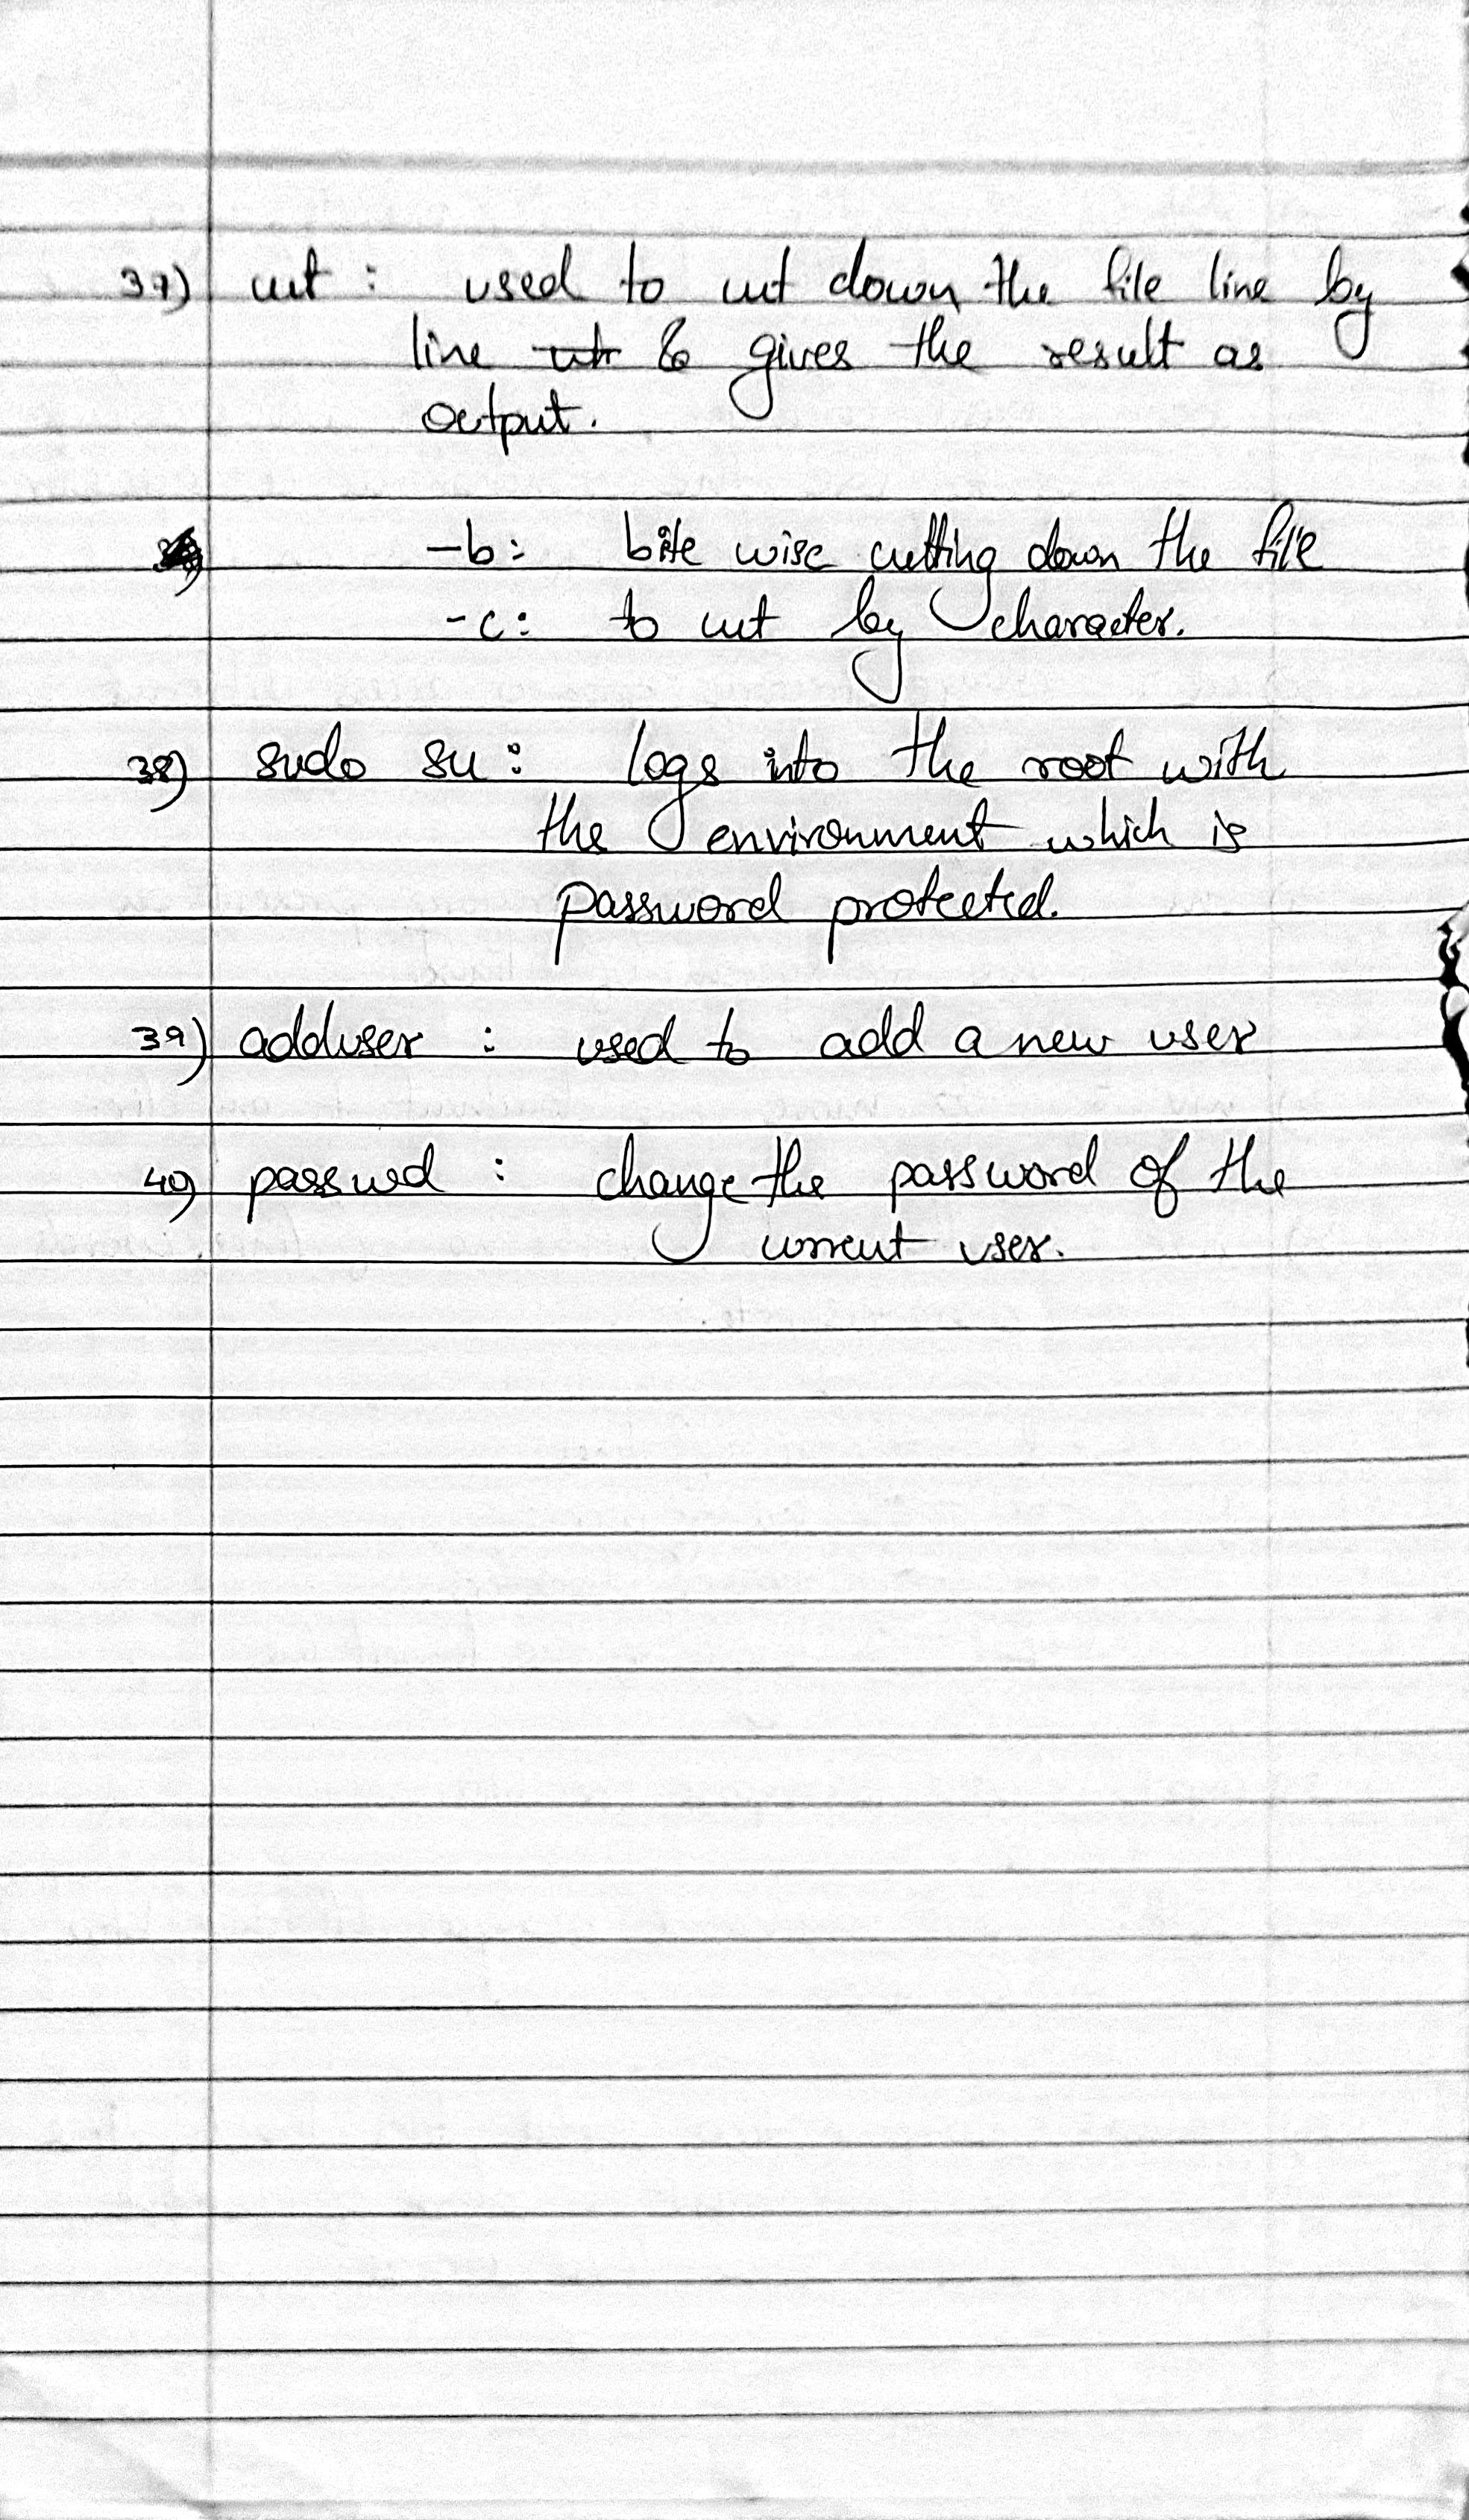 37) cut : used to cut down the file line by
line & gives the result as
output.
-b: bite wise cutting down the file
-c: to cut by character.
38) sudo su : logs into the root with
the environment which is
password protected.
39) adduser : used to add a new user
40) passwd : change the password of the
current user.